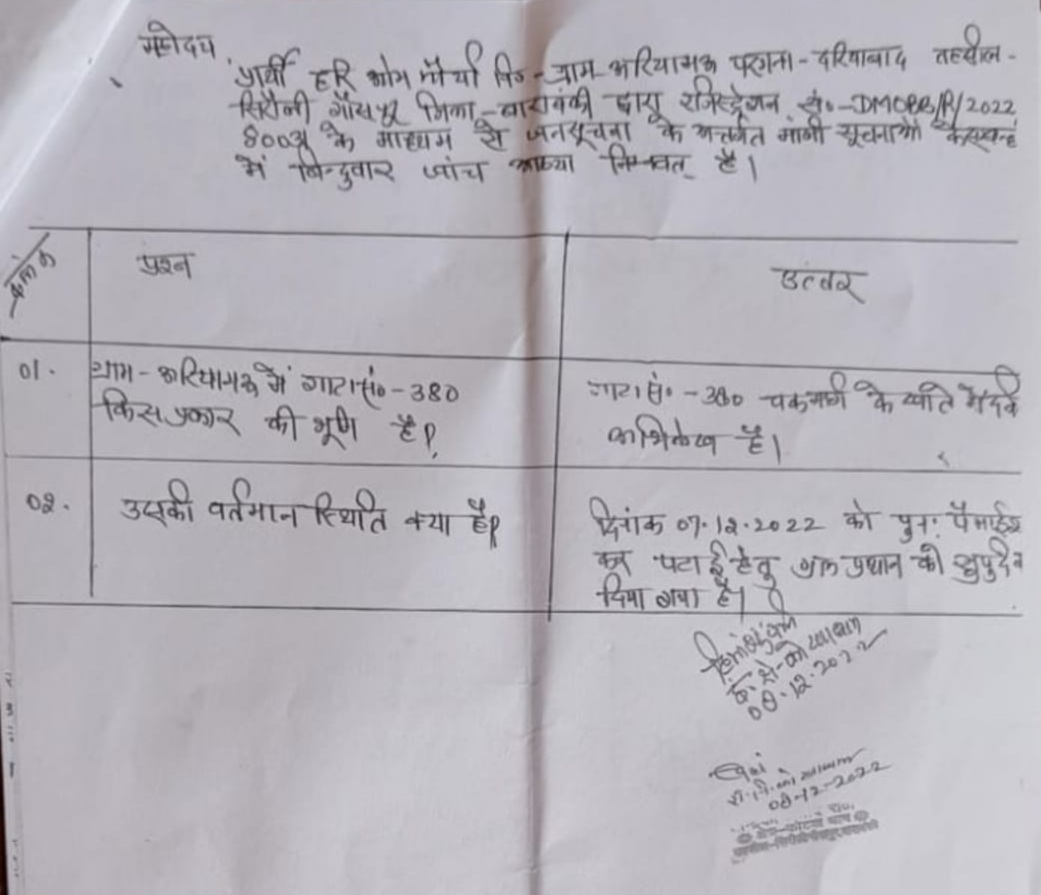 महोदय,
प्रार्थी हरि ओम मौर्या नि०-ग्राम-भरियामऊ परगना-दरियाबाद तहसील-
सिरौली गौसपुर जिला-बाराबंकी द्वारा रजिस्ट्रेशन सं०-DMOBB/R/2022
के माध्यम से जनसूचना के अन्तर्गत मांगी सूचनाओं के सम्बन्ध
में बिन्दुवार जांच आख्या निम्नवत् है।
क्रमांक प्रश्न उत्तर
01. ग्राम-भरियामऊ में गाटा सं०-380
किस प्रकार की भूमि है?
गाटा सं०-380 चकमार्ग के खाते में दर्ज
अभिलेख है।
02. उसकी वर्तमान स्थिति क्या है?
दिनांक 07.12.2022 को पुनः पैमाईश
कर पटाई हेतु ग्राम प्रधान को सुपुर्द
दिया गया है।
08.12.2022
08-12-2022